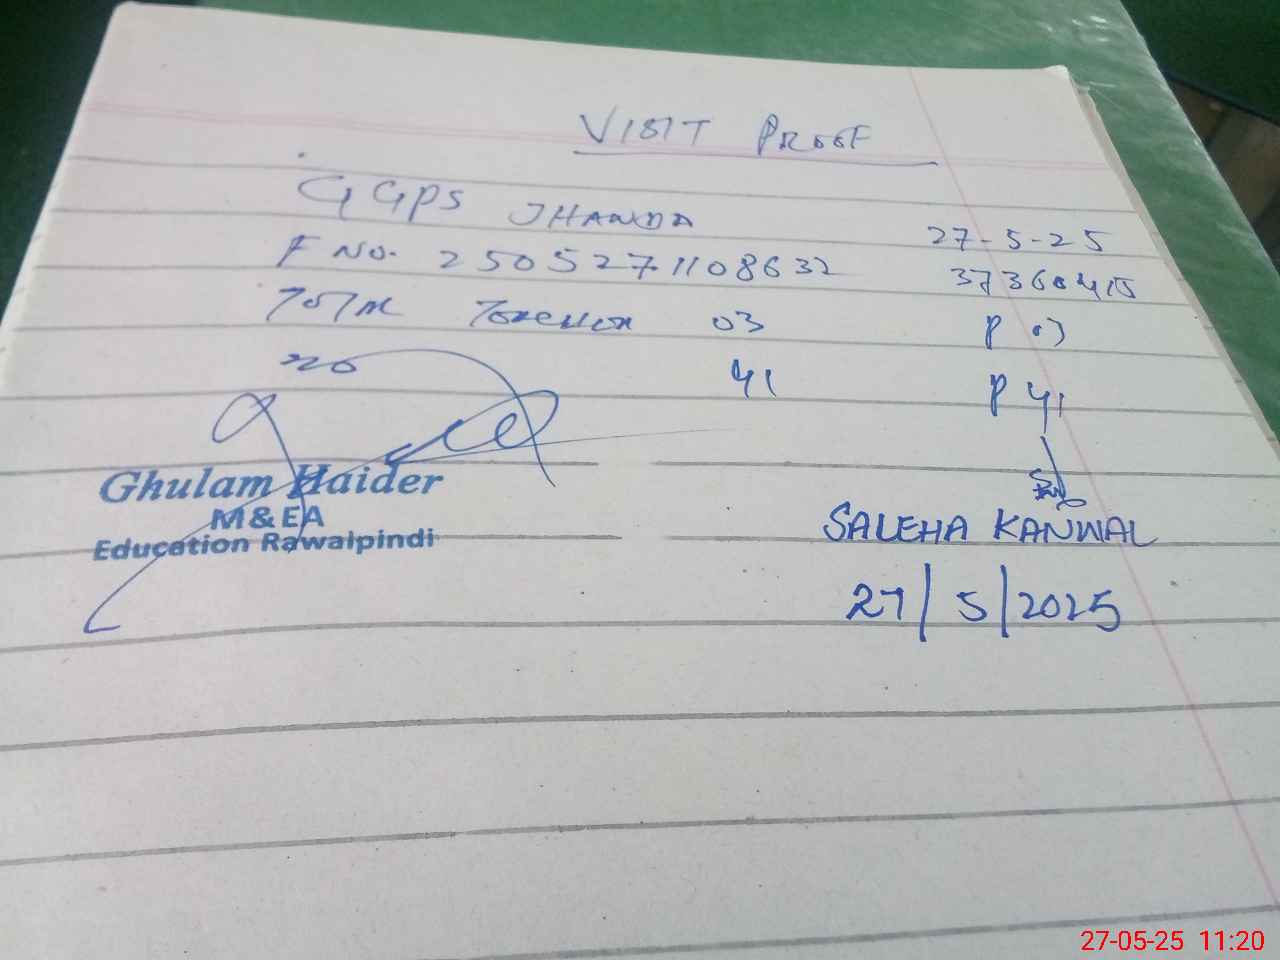 VISIT PROOF
GGPS JHANDA 27-5-25
F NO. 2505271108632 37360415
Total Teacher 03 P 03
41 P 41
Ghulam Haider
M & EA
Education Rawalpindi
SALEHA KANWAL
27/5/2025
27-05-25 11:20